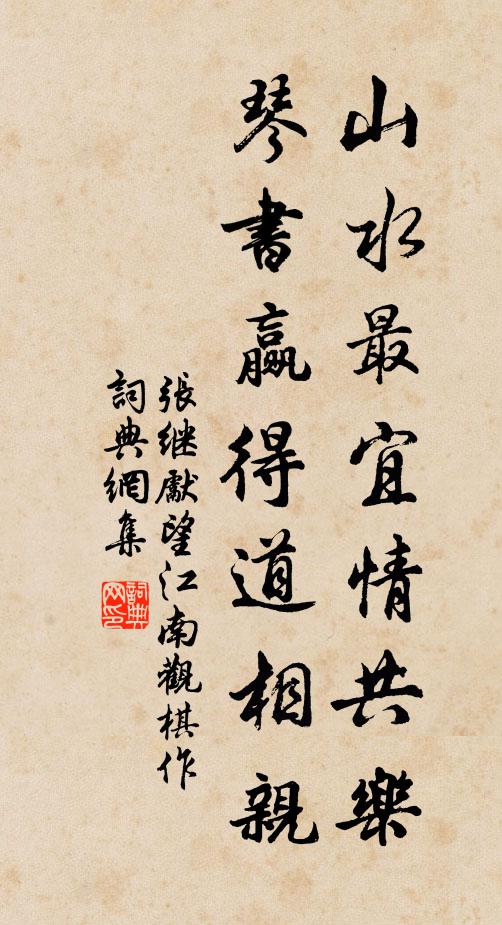 山水最宜情共樂
琴書贏得道相親
張継獻望江南觀棋作
詞典網集
詞典网印